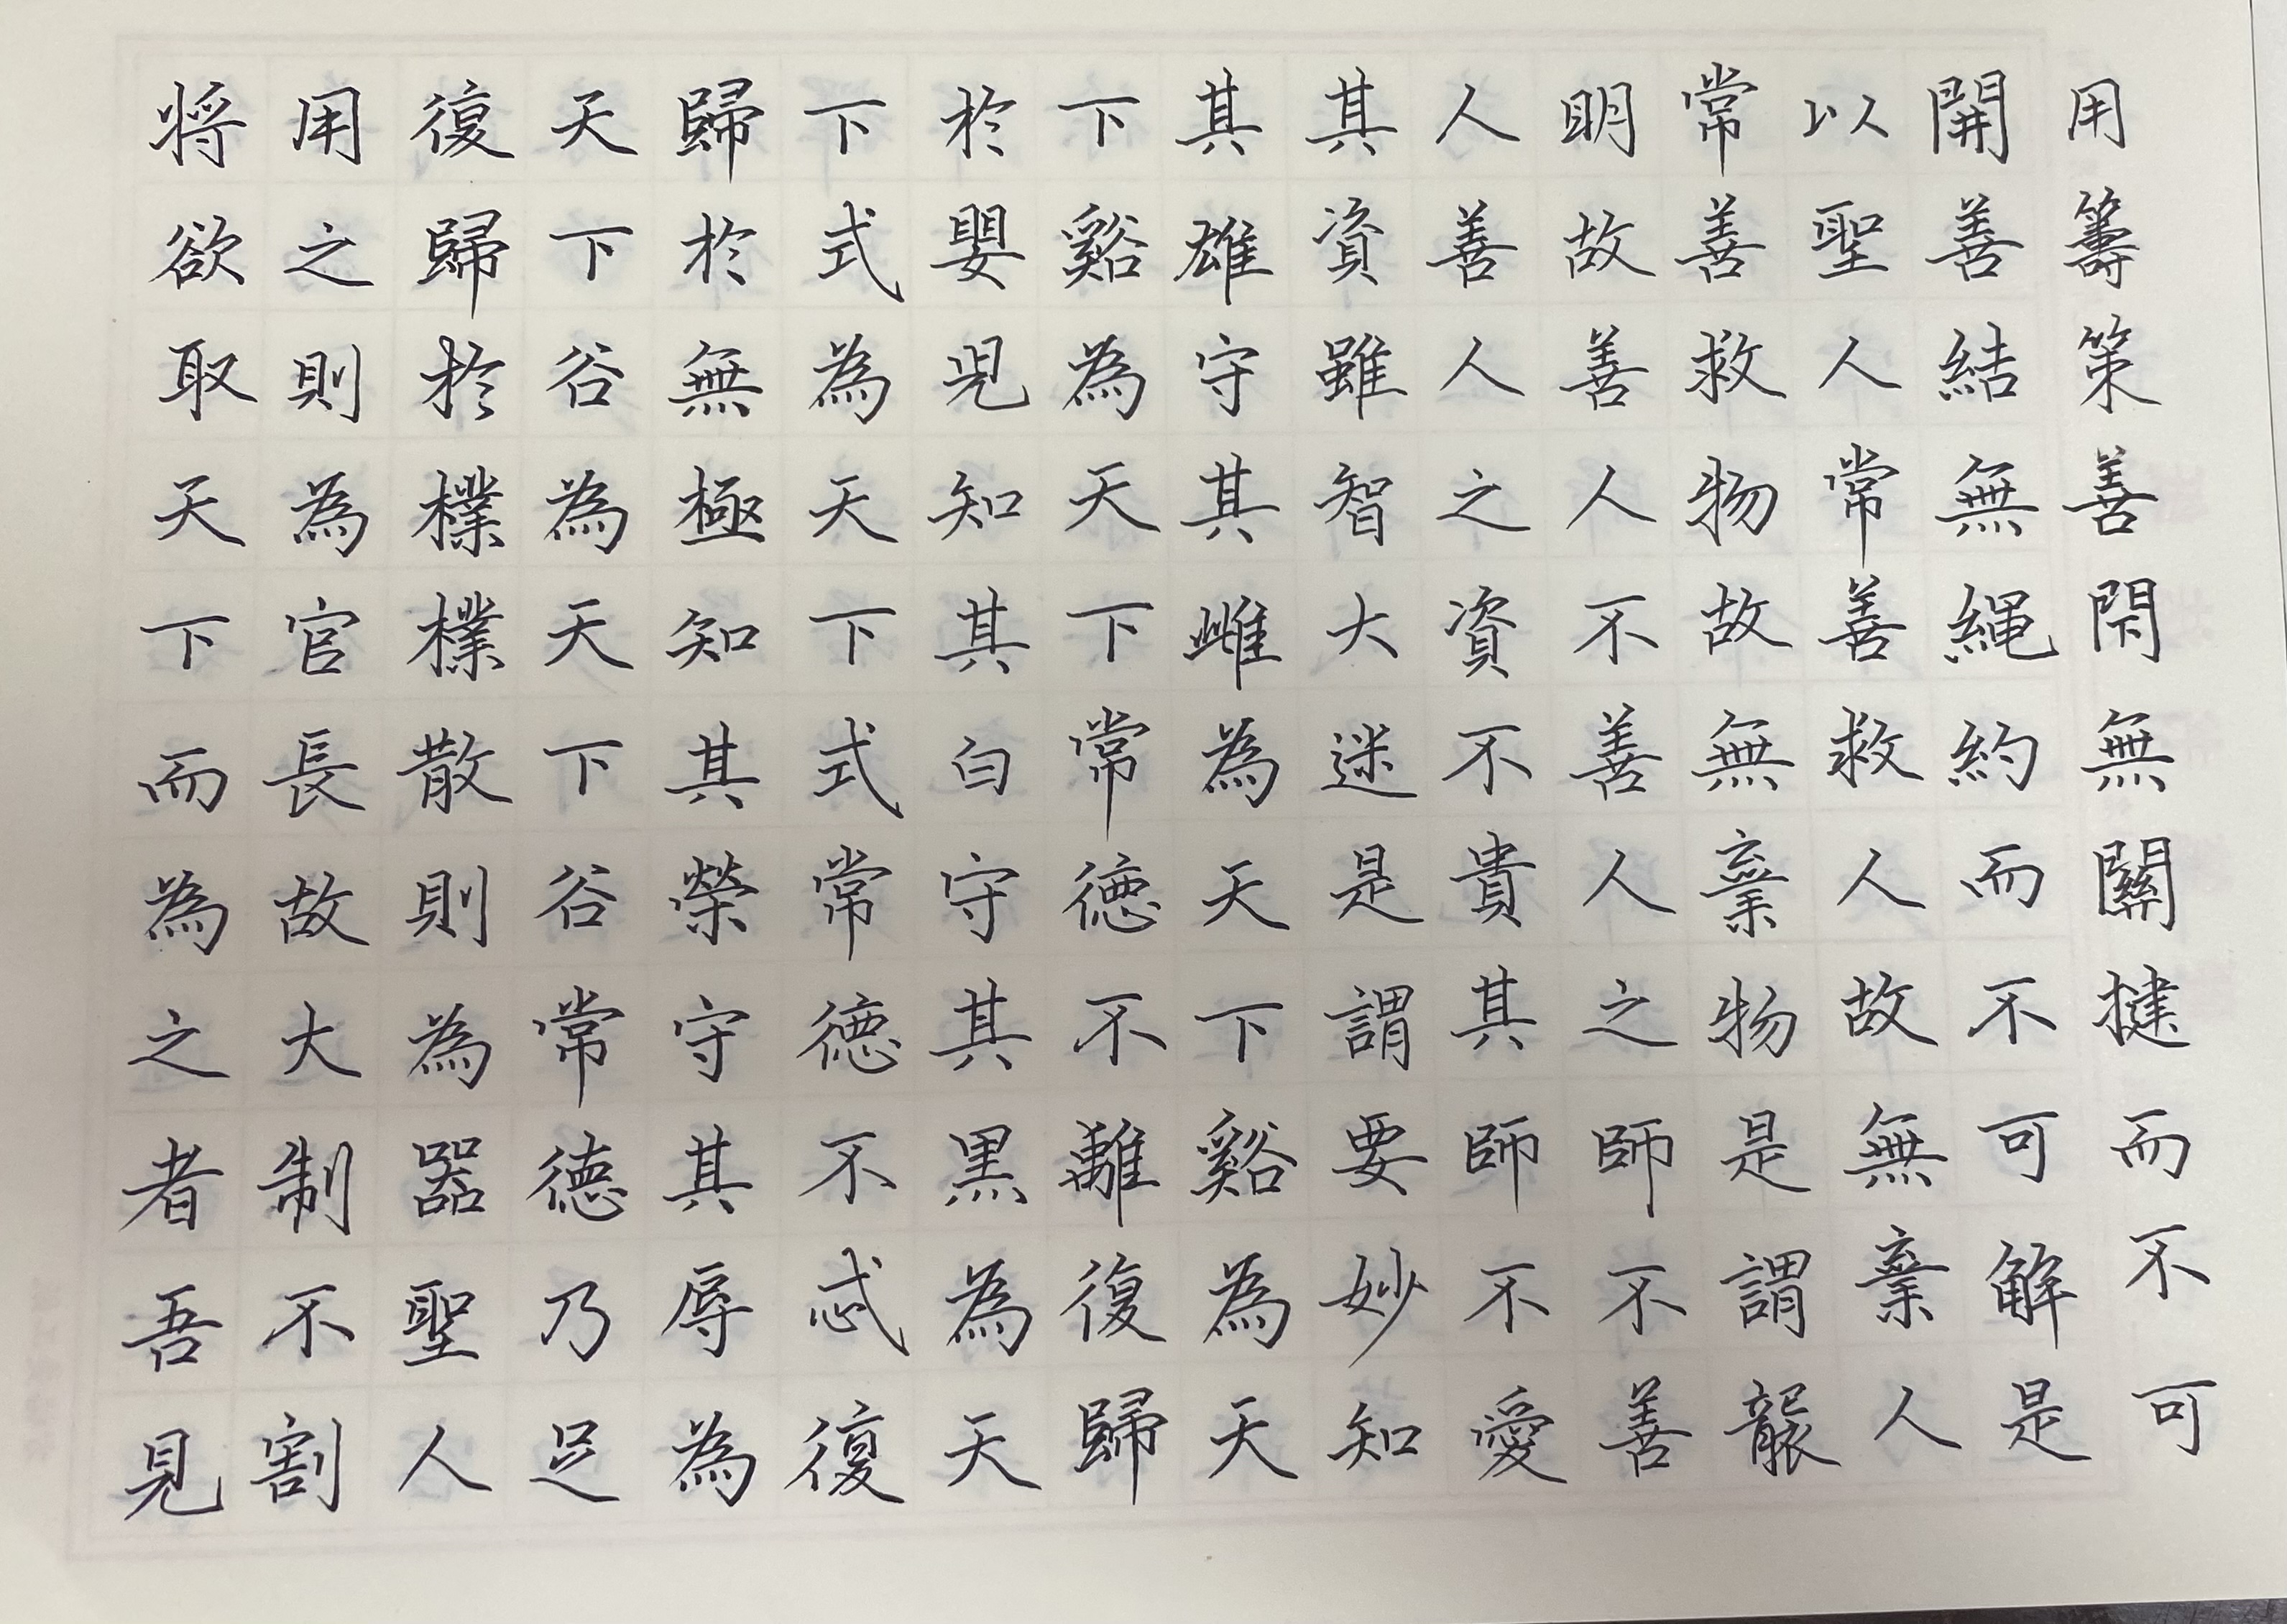 用籌策善閇無關揵而不可
開善結無繩約而不可解是
以聖人常善救人故無棄人
常善救物故無棄物是謂襲
明故善人不善人之師不善
人善人之資不貴其師不愛
其資雖智大迷是謂要妙知
其雄守其雌為天下谿為天
下谿為天下常德不離復歸
於嬰児知其白守其黒為天
下式為天下式常德不忒復
歸於無極知其榮守其辱為
天下谷為天下谷常德乃足
復歸於樸樸散則為器聖人
用之則為官長故大制不割
将欲取天下而為之者吾見